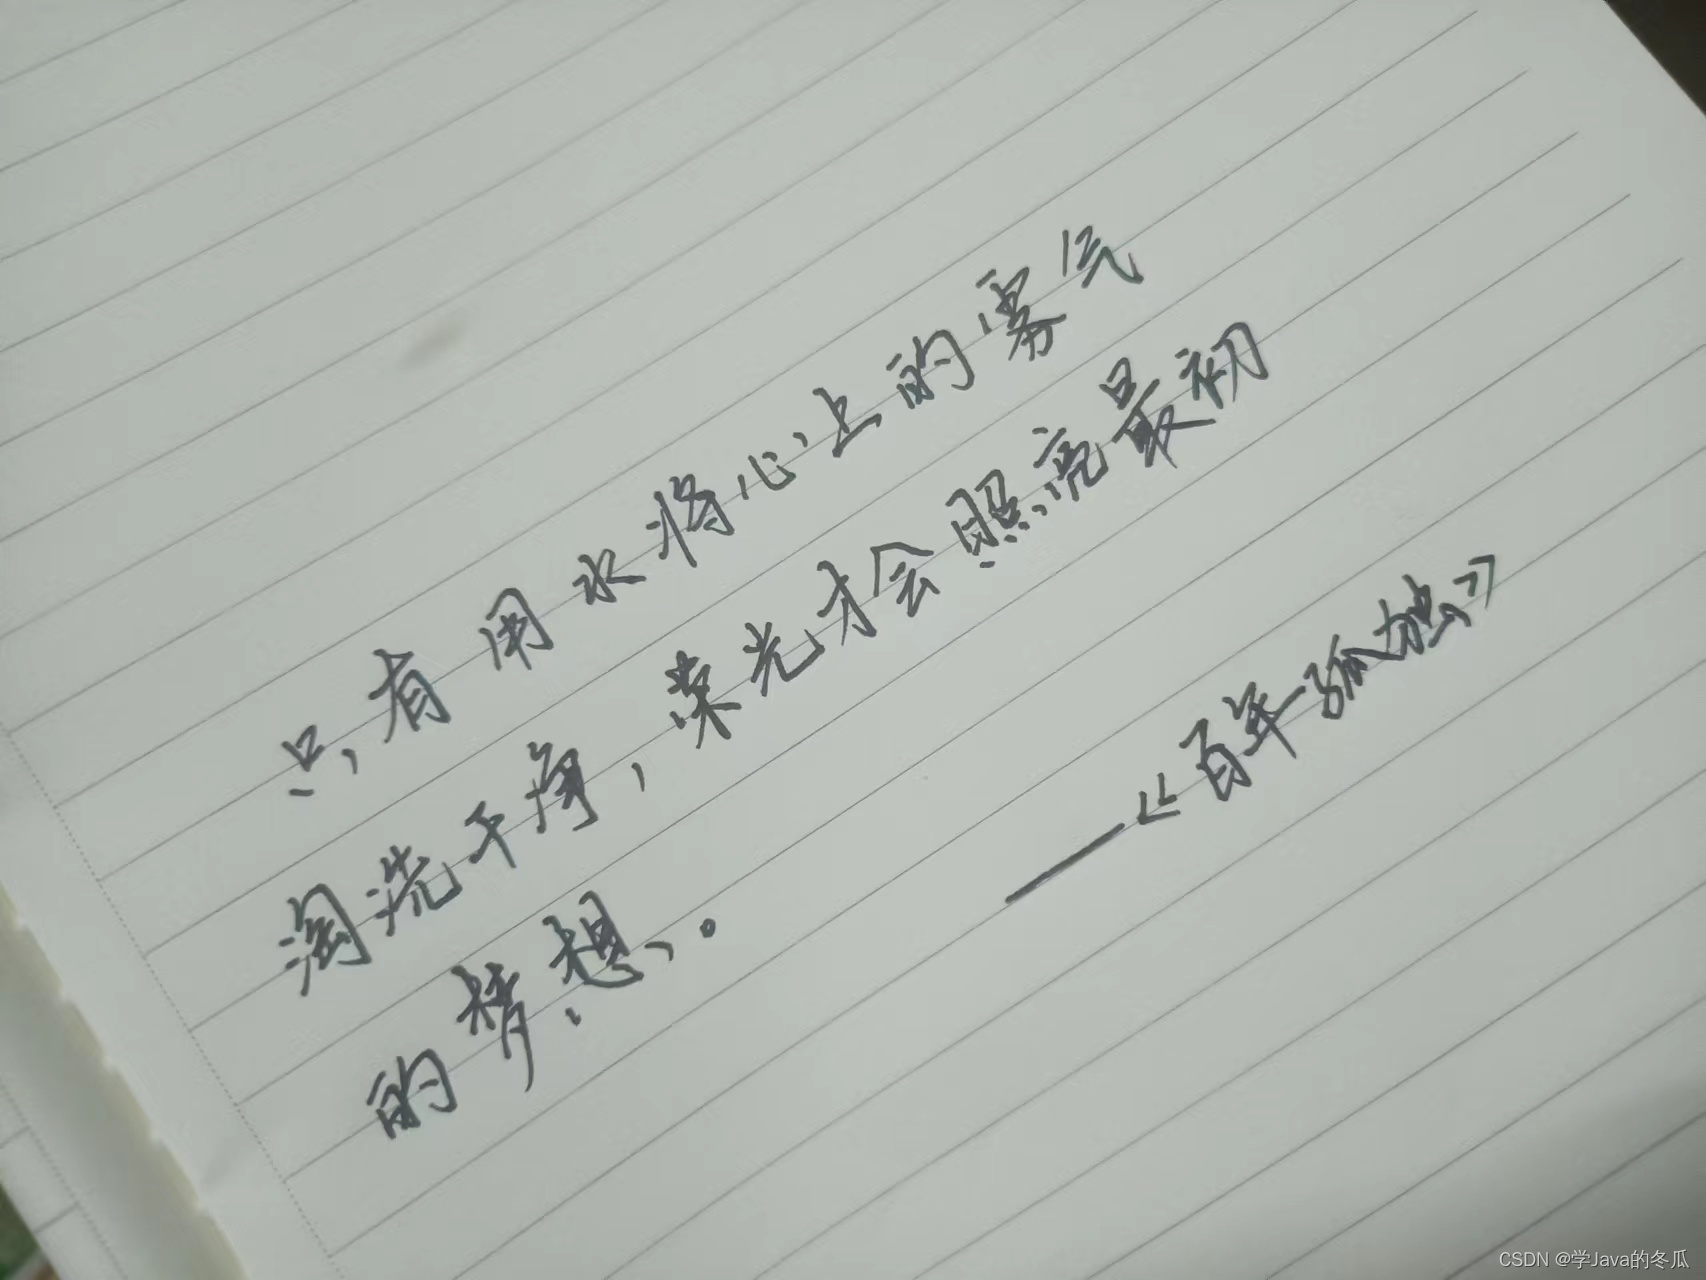 只有用水将心上的雾气
淘洗干净，荣光才会照亮最初
的梦想。
——《百年孤独》
CSDN @学Java的冬瓜